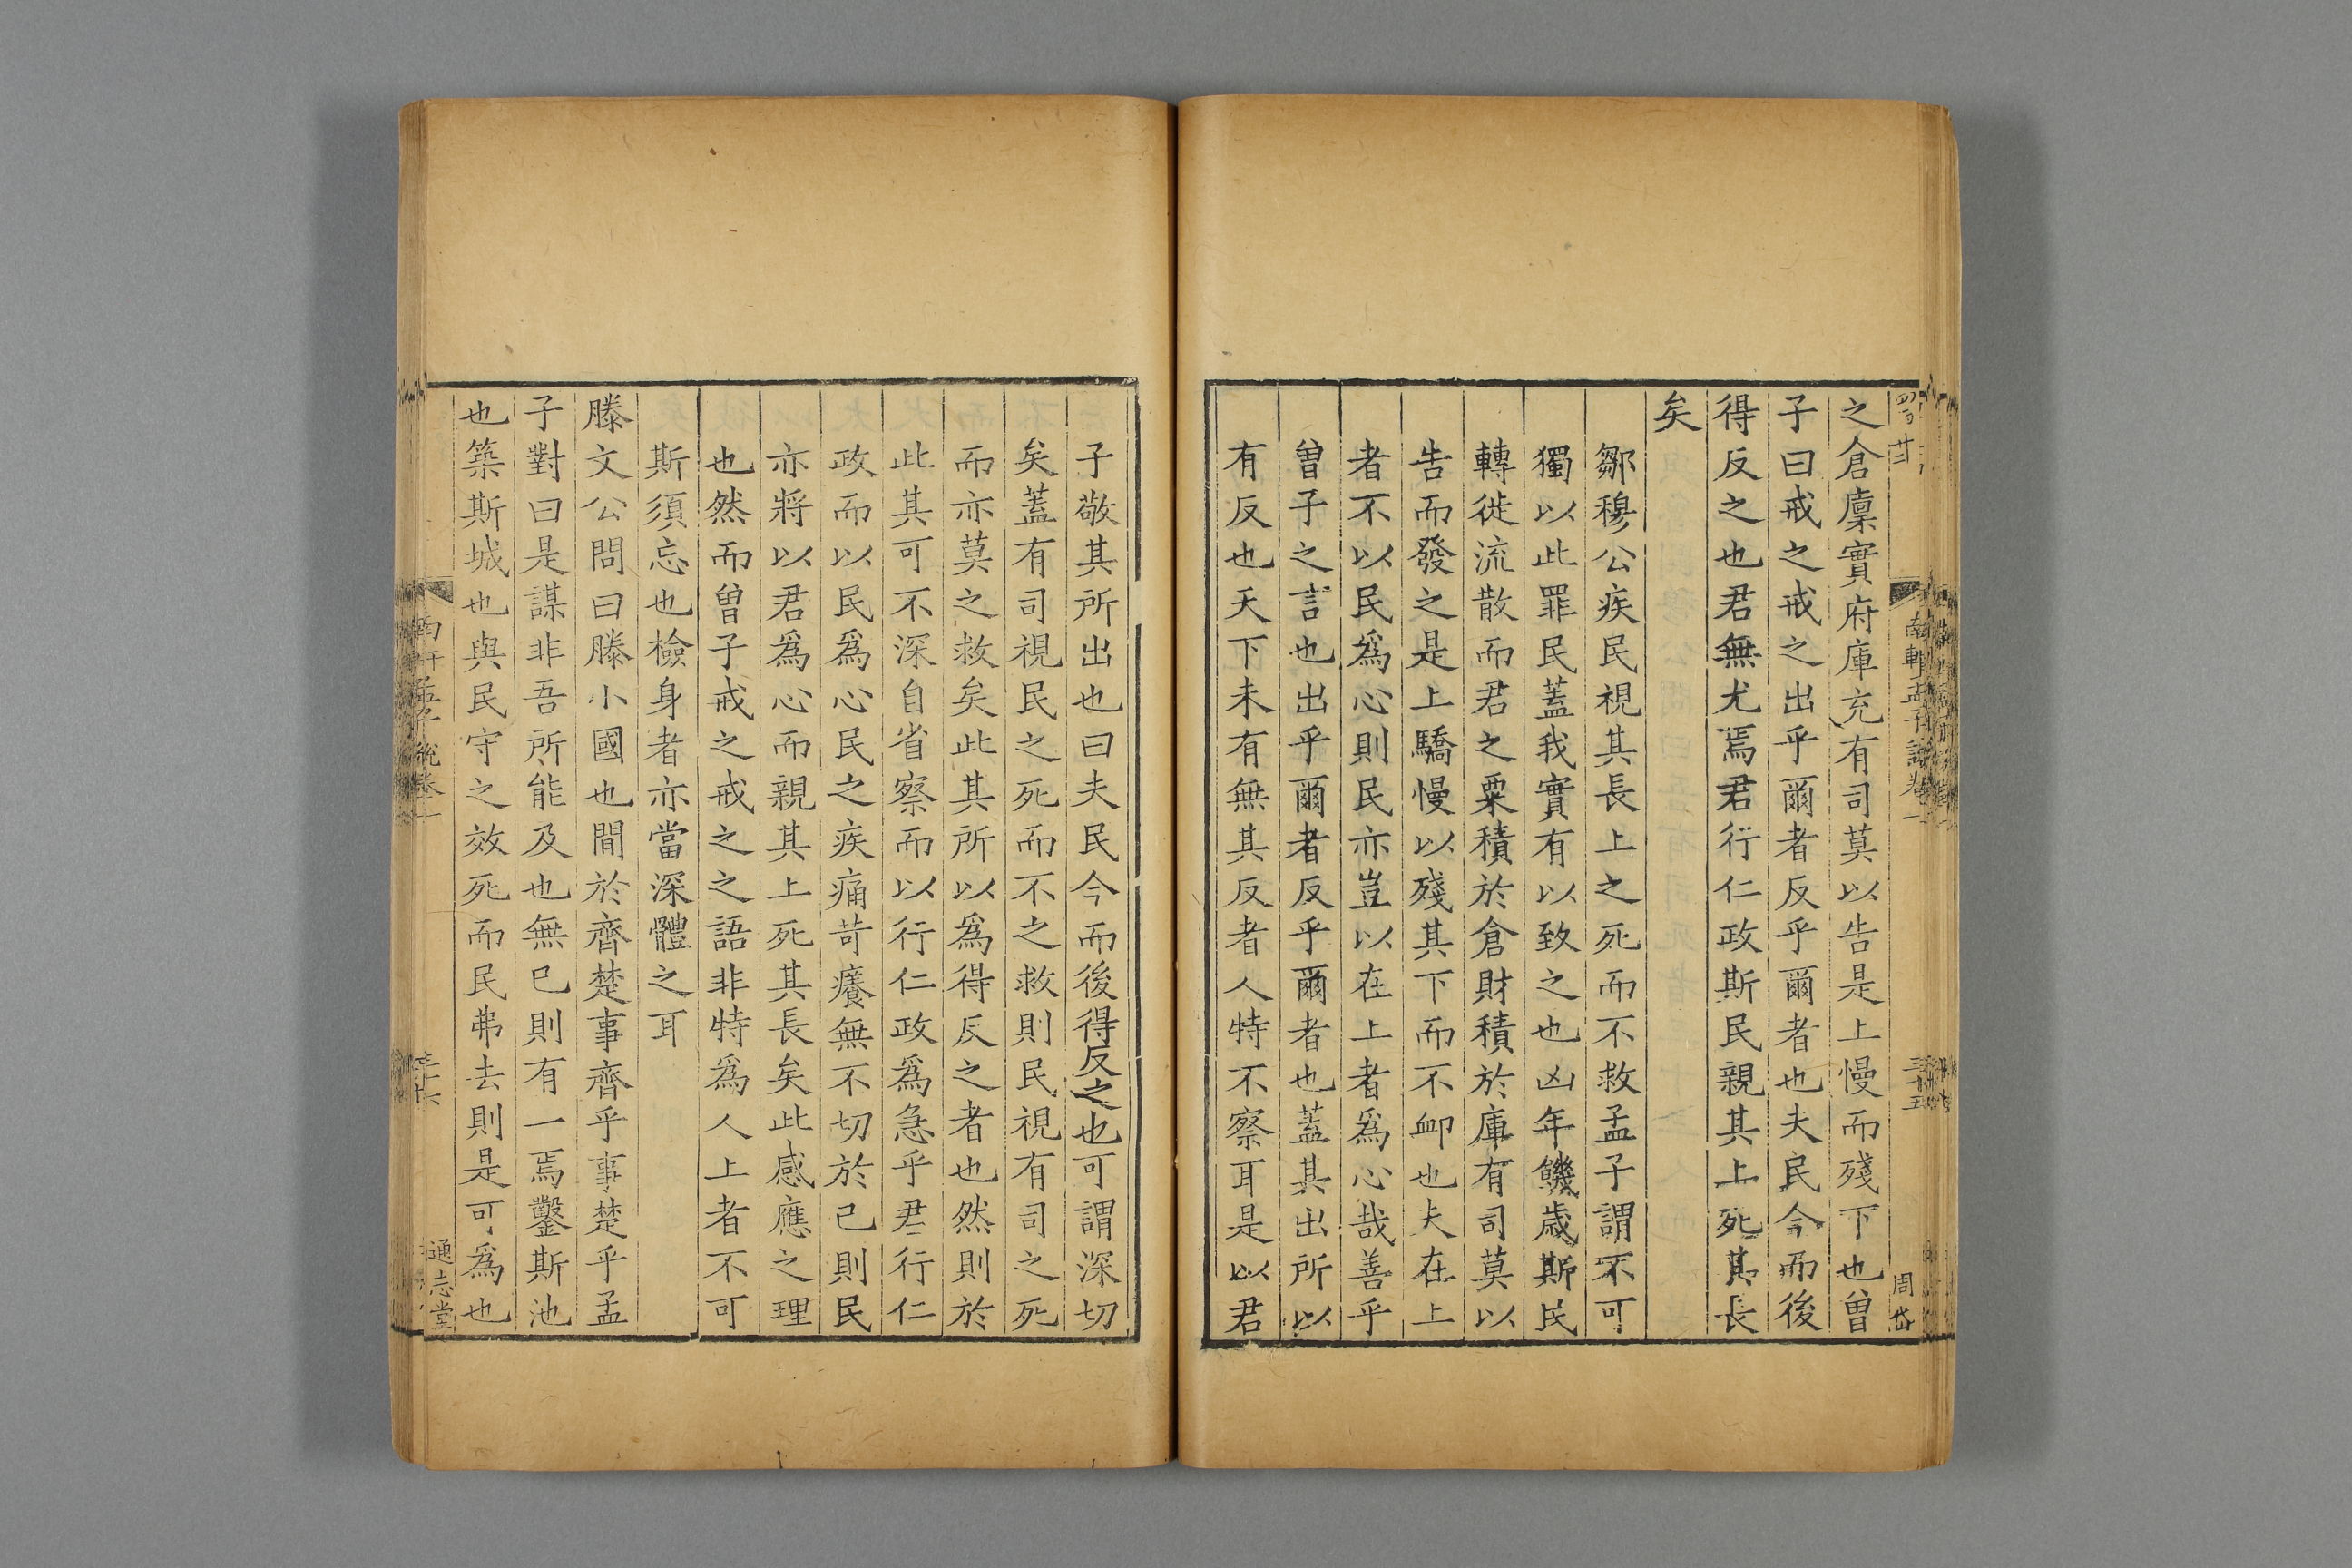 南軒孟子說卷一
三十五
周岱
之倉廩實府庫充有司莫以告是上慢而殘下也曾
子曰戒之戒之出乎爾者反乎爾者也夫民今而後
得反之也君無尤焉君行仁政斯民親其上死其長
矣
鄒穆公疾民視其長上之死而不救孟子謂不可
獨以此罪民蓋我實有以致之也凶年饑歲斯民
轉徙流散而君之粟積於倉財積於庫有司莫以
告而發之是上驕慢以殘其下而不卹也夫在上
者不以民爲心則民亦豈以在上者爲心哉善乎
曾子之言也出乎爾者反乎爾者也蓋其出所以
有反也天下未有無其反者人特不察耳是以君
子敬其所出也曰夫民今而後得反之也可謂深切
矣蓋有司視民之死而不之救則民視有司之死
而亦莫之救矣此其所以爲得反之者也然則於
此其可不深自省察而以行仁政爲急乎君行仁
政而以民爲心民之疾痛苛癢無不切於己則民
亦將以君爲心而親其上死其長矣此感應之理
也然而曾子戒之戒之之語非特爲人上者不可
斯須忘也檢身者亦當深體之耳
滕文公問曰滕小國也間於齊楚事齊乎事楚乎孟
子對曰是謀非吾所能及也無已則有一焉鑿斯池
也築斯城也與民守之效死而民弗去則是可爲也
通志堂